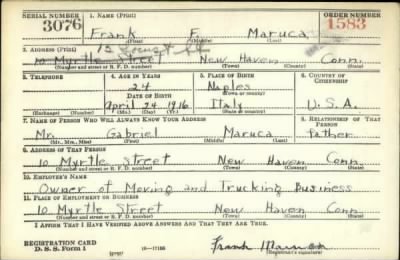 SERIAL NUMBER 1. NAME (Print) ORDER NUMBER
3076 Frank F. Maruca 1583
(First) (Middle) (Last)
2. ADDRESS (Print)
10 Myrtle Street New Haven Conn.
(Number and street or R. F. D. number) (Town) (County) (State)
3. TELEPHONE 4. AGE IN YEARS 5. PLACE OF BIRTH 6. COUNTRY OF CITIZENSHIP
24 Naples
DATE OF BIRTH (Town or county)
April 24 1916 Italy U.S.A.
(Exchange) (Number) (Mo.) (Day) (Yr.) (State or country)
7. NAME OF PERSON WHO WILL ALWAYS KNOW YOUR ADDRESS 8. RELATIONSHIP OF THAT PERSON
Mr. Gabriel Maruca father
(Mr., Mrs., Miss) (First) (Middle) (Last)
9. ADDRESS OF THAT PERSON
10 Myrtle Street New Haven Conn
(Number and street or R. F. D. number) (Town) (County) (State)
10. EMPLOYER'S NAME
Owner of Moving and Trucking Business
11. PLACE OF EMPLOYMENT OR BUSINESS
10 Myrtle Street New Haven Conn
(Number and street or R. F. D. number) (Town) (County) (State)
I AFFIRM THAT I HAVE VERIFIED ABOVE ANSWERS AND THAT THEY ARE TRUE.
REGISTRATION CARD
D. S. S. Form 1 Frank Maruca
(Registrant's signature)